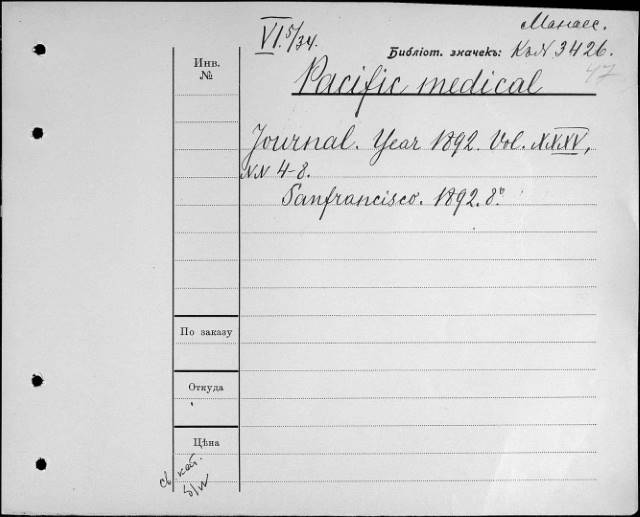 Манасс.
VI.5/34.
Библіот. значекъ: КъN 3426.
47
Инв.
№
Pacific medical
Journal. Year 1892. Vol. XXXV,
NN 4-8.
Sanfrancisco. 1892. 8°
По заказу
Откуда
Цѣна
св. кат.
б/н